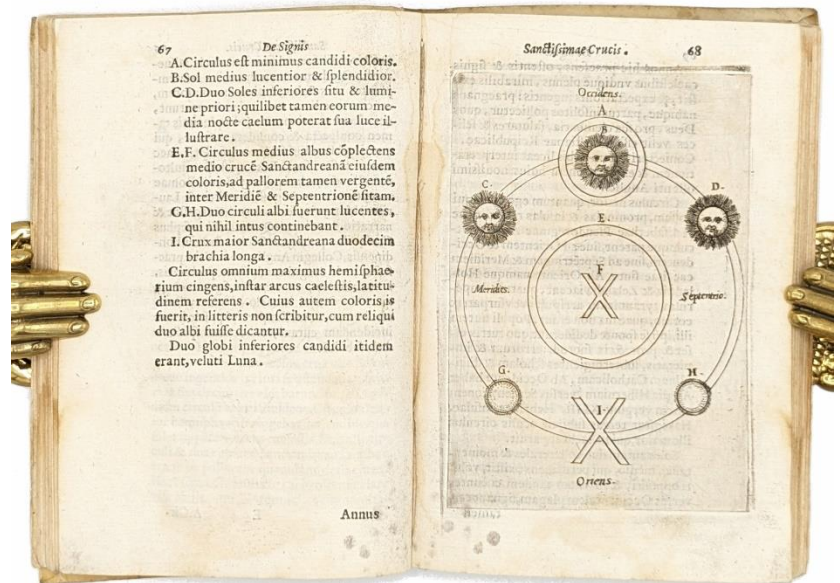 67 De Signis
A.Circulus est minimus candidi coloris.
B.Sol medius lucentior & ſplendidior.
C.D.Duo Soles inferiores ſitu & lumi-
ne priori; quilibet tamen eorum me-
dia nocte caelum poterat ſua luce il-
luſtrare.
E.F. Circulus medius albus cõplectens
medio crucẽ Sanctandreanã eiuſdem
coloris, ad pallorem tamen vergentẽ,
inter Meridiẽ & Septentrionẽ ſitam.
G.H.Duo circuli albi fuerunt lucentes,
qui nihil intus continebant.
I. Crux maior Sanctandreana duodecim
brachia longa.
Circulus omnium maximus hemiſphae-
rium cingens, inſtar arcus caeleſtis, latitu-
dinem referens. Cuius autem coloris is
fuerit, in litteris non ſcribitur, cum reliqui
duo albi fuiſſe dicantur.
Duo globi inferiores candidi itidem
erant, veluti Luna.
Annus
Sanctiſsimae Crucis. 68
Occidens.
A
B
C.
D.
E
F
Meridies.
Septentrio.
G.
H.
I.
Oriens.